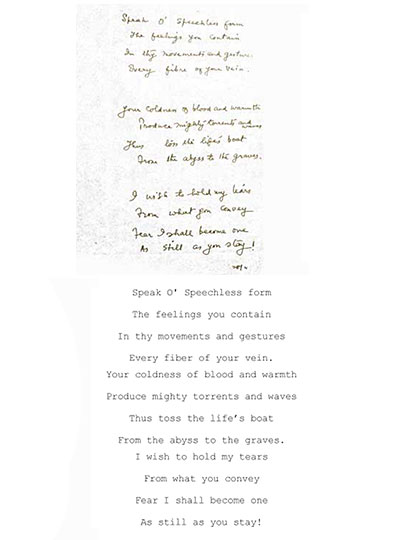 Speak O' Speechless form
The feelings you contain
In thy movements and gesture.
Every fibre of your vein.
Your coldness of blood and warmth
Produce mighty torrents and waves
Thus toss the life's boat
From the abyss to the graves.
I wish to hold my tears
From what you convey
Fear I shall become one
As still as you stay!
Speak O' Speechless form
The feelings you contain
In thy movements and gestures
Every fiber of your vein.
Your coldness of blood and warmth
Produce mighty torrents and waves
Thus toss the life's boat
From the abyss to the graves.
I wish to hold my tears
From what you convey
Fear I shall become one
As still as you stay!